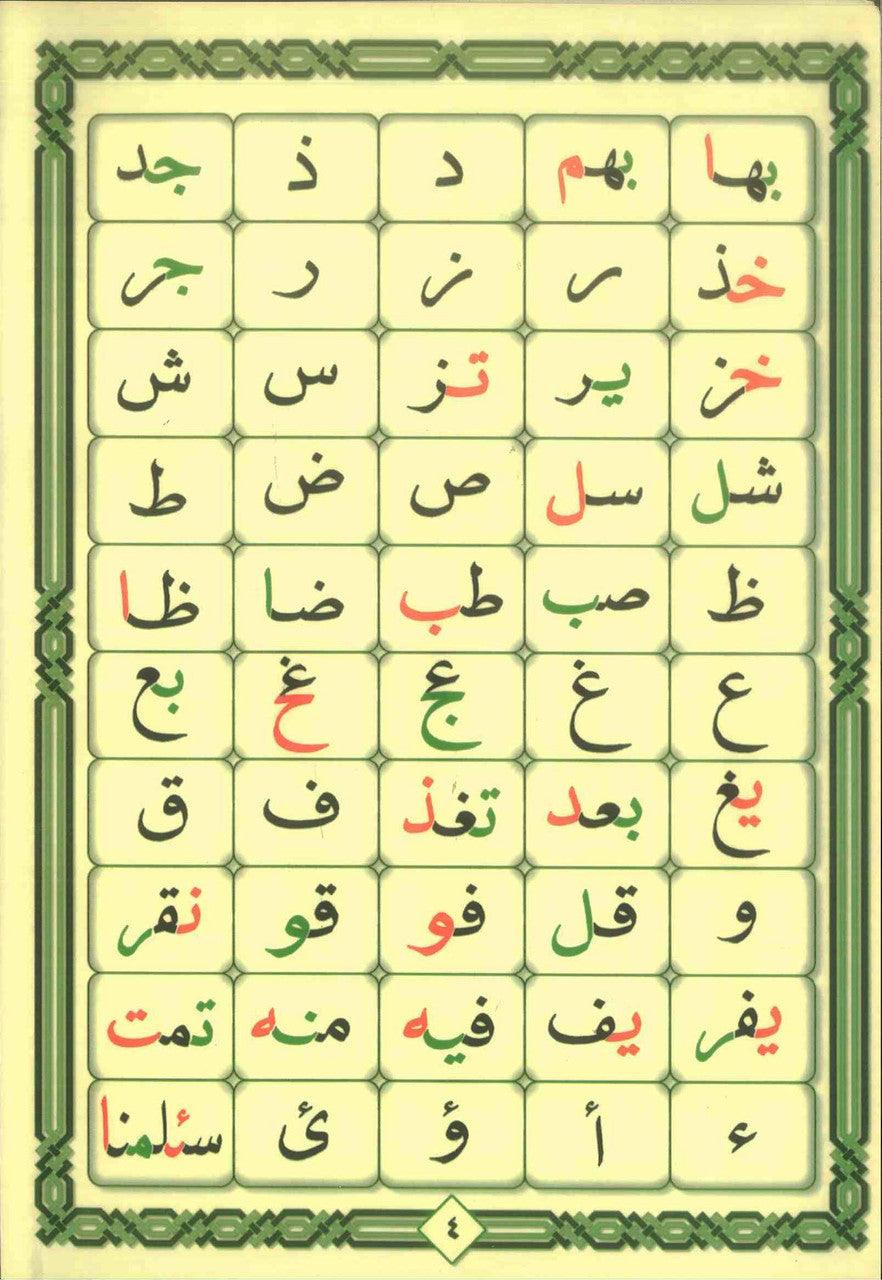 بها بهم د ذ جد
خذ ر ز ر جر
خز ير تز س ش
شل سل ص ض ط
ظ صب طب ضا ظا
ع غ عج غح بع
يغ بعد تغذ ف ق
و قل فو قو نقر
يفر يف فيه منه تمت
ء أ ؤ ئ سئلمنا
٤